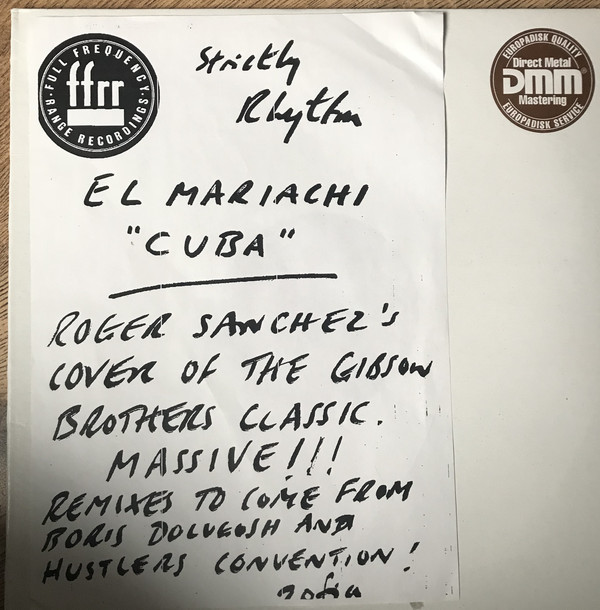 FULL FREQUENCY
ffrr
RANGE RECORDINGS
Strictly
Rhythm
EUROPADISK QUALITY
Direct Metal
DMM®
Mastering
EUROPADISK SERVICE
EL MARIACHI
"CUBA"
ROGER SANCHEZ'S
COVER OF THE GIBSON
BROTHERS CLASSIC.
MASSIVE!!!
REMIXES TO COME FROM
BORIS DOLUGOSH AND
HUSTLERS CONVENTION!